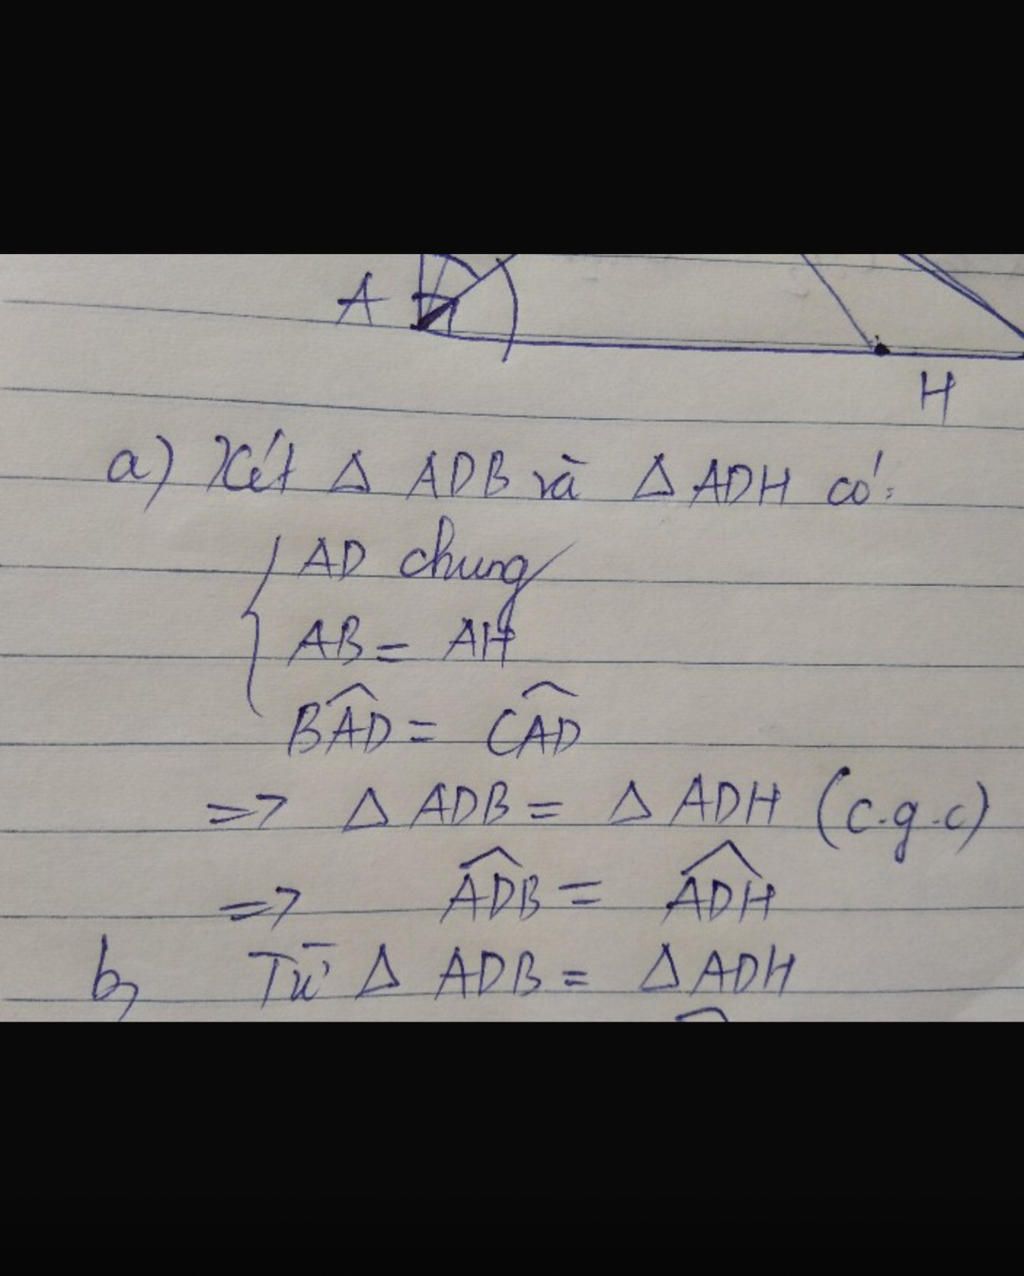 A
H
a) Xét Δ ADB và Δ ADH có:
AD chung
AB = AH
\widehat{BAD} = \widehat{CAD}
=> Δ ADB = Δ ADH (c.g.c)
=> \widehat{ADB} = \widehat{ADH}
b, Từ Δ ADB = Δ ADH